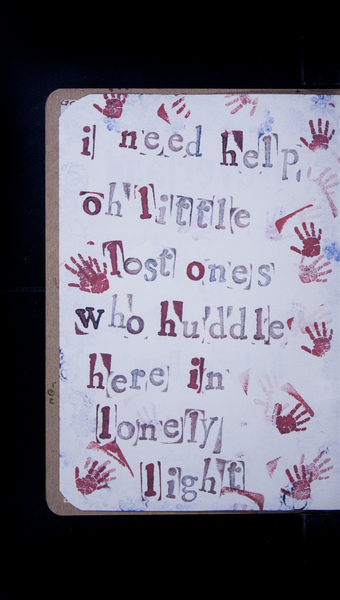 i need help,
oh little
lost ones
who huddle
here in
lonely
light